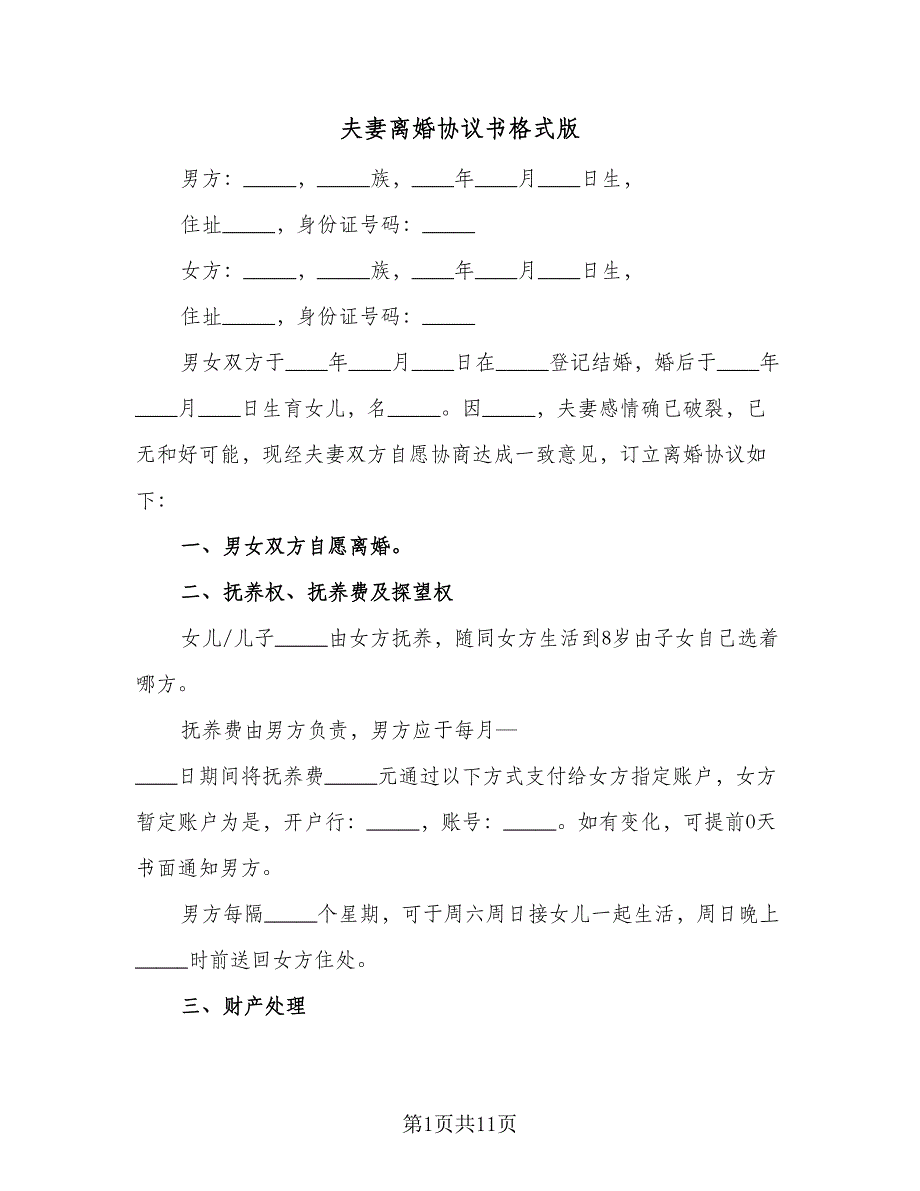 夫妻离婚协议书格式版
男方：_____，_____族，____年____月____日生，
住址_____，身份证号码：_____
女方：_____，_____族，____年____月____日生，
住址_____，身份证号码：_____
男女双方于____年____月____日在_____登记结婚，婚后于____年
____月____日生育女儿，名_____。因_____，夫妻感情确已破裂，已
无和好可能，现经夫妻双方自愿协商达成一致意见，订立离婚协议如
下：
一、男女双方自愿离婚。
二、抚养权、抚养费及探望权
女儿/儿子_____由女方抚养，随同女方生活到8岁由子女自己选着
哪方。
抚养费由男方负责，男方应于每月—
____日期间将抚养费_____元通过以下方式支付给女方指定账户，女方
暂定账户为是，开户行：_____，账号：_____。如有变化，可提前0天
书面通知男方。
男方每隔_____个星期，可于周六周日接女儿一起生活，周日晚上
_____时前送回女方住处。
三、财产处理
第1页共11页